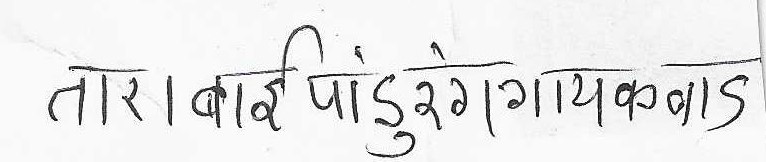 ताराबाई पांडुरंग गायकवाड